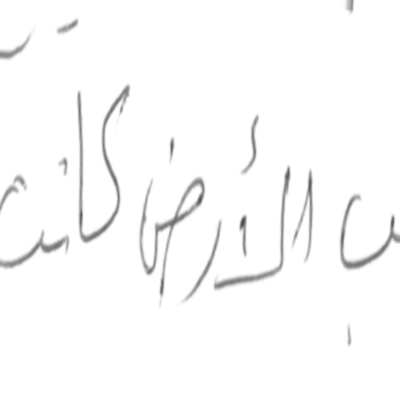 الأرض كانت